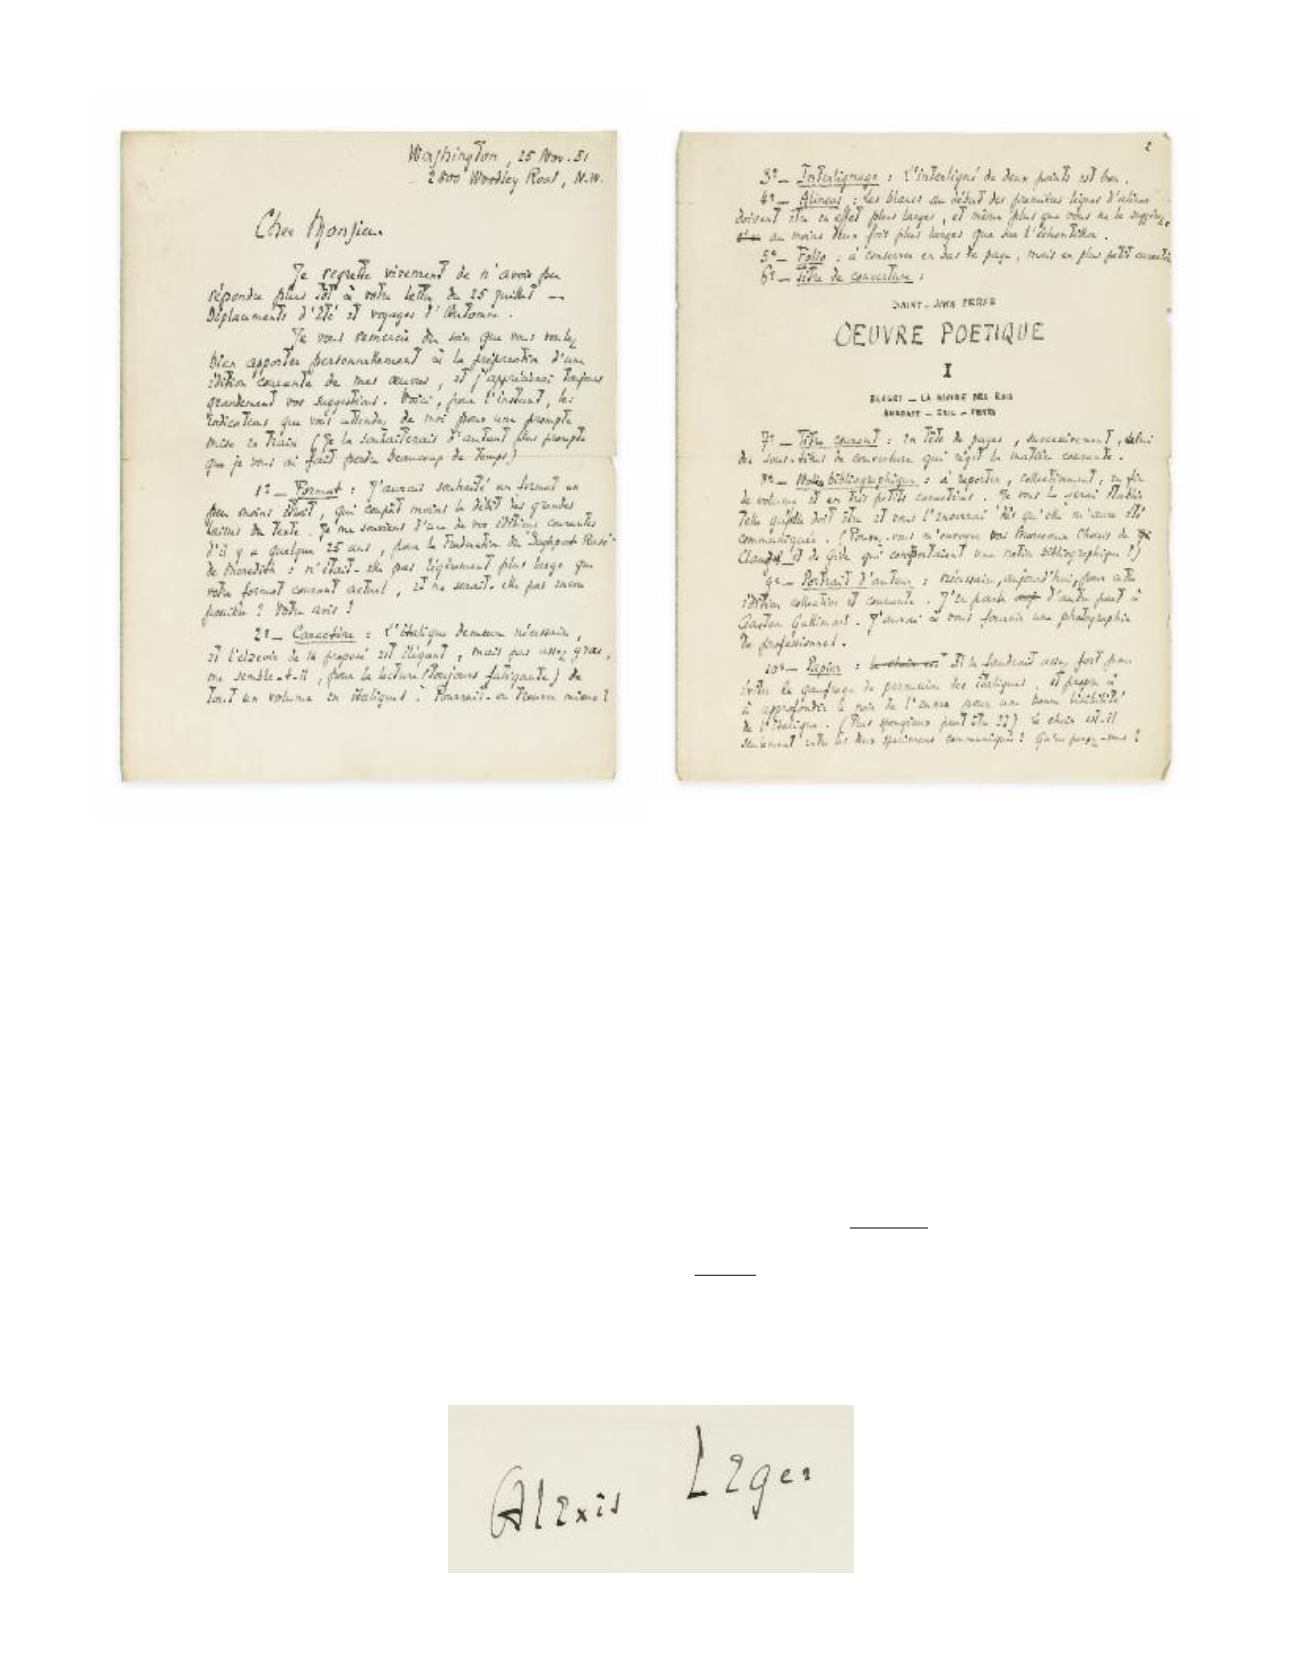 Washington, 25 Nov. 51
2800 Woodley Road, N.W.
Cher Monsieur
Je regrette vivement de n'avoir pu
répondre plus tôt à votre lettre du 25 juillet —
Déplacements d'été et voyages d'Automne.
Je vous remercie du soin que vous voulez
bien apporter personnellement à la préparation d'une
édition courante de mes œuvres, et j'apprécierai toujours
grandement vos suggestions. Voici, pour l'instant, les
indications que vous attendez de moi pour une prompte
mise en train (Je la souhaiterais d'autant plus prompte
que je vous ai fait perdre beaucoup de temps)
1º — Format : J'aurais souhaité un format un
peu moins étroit, qui coupât moins le débit des grandes
laisses du texte. Je me souviens d'une de vos éditions courantes
d'il y a quelque 25 ans, pour la traduction du
de Meredith : n'était-elle pas légèrement plus large que
votre format courant actuel, et ne serait-elle pas encore
possible ? Votre avis ?
2º — Caractère : L'italique demeure nécessaire,
et l'elzévir de 14 proposé est élégant, mais pas assez gras,
me semble-t-il, pour la lecture (toujours fatigante) de
tout un volume en italiques. Pourrait-on trouver mieux ?
2
3º — Interlignage : L'interligné de deux points est bon.
4º — Alinéas : Les blancs au début des premières lignes d'alinéas
doivent être en effet plus larges, et même plus que vous ne le suggérez,
au moins deux fois plus larges que sur l'échantillon.
5º — Folio : à conserver en bas de page, mais en plus petit caractère
6º — Titre de couverture :
SAINT-JOHN PERSE
OEUVRE POETIQUE
I
ELOGES — LA GLOIRE DES ROIS
ANABASE — EXIL — VENTS
7º — Titre courant : en tête de pages, successivement, celui
des sous-titres de couverture qui régit la matière courante.
8º — Notice bibliographique : à reporter, collectivement, en fin
de volume et en très petits caractères. Je vous la
telle qu'elle doit être et vous l'enverrai dès qu'elle m'aura été
communiquée. (Pouvez-vous m'envoyer vos Morceaux Choisis de
Claudel et de Gide qui comportaient une notice bibliographique ?)
9º — Portrait d'auteur : nécessaire, aujourd'hui, pour cette
édition collective et courante. J'en parle d'autre part à
Gaston Gallimard. J'aurai à vous fournir une photographie
de professionnel.
10º — Papier : Il le faudrait assez fort pour
éviter le gaufrage de pression des italiques, et propre à
à approfondir le noir de l'encre pour une bonne lisibilité
de l'italique. (Plus spongieux peut-être ??) Le choix est-il
seulement entre les deux spécimens communiqués ? Qu'en pensez-vous ?
Alexis Leger